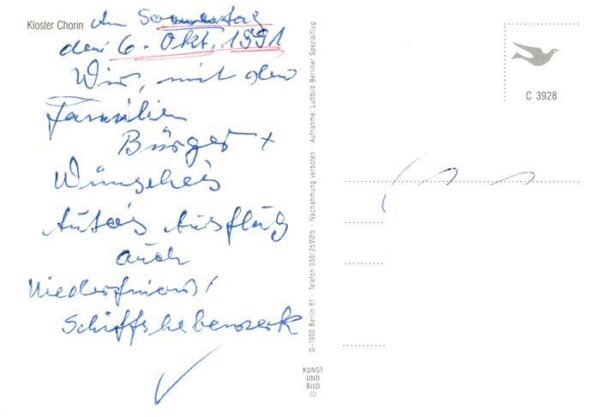 Kloster Chorin
Am Sonnentag
den 6. Okt. 1991
Wir, mit den
Familien
Bürger +
Wünsche's
Auto's Ausflug
auch
Niederfinow/
Schiffshebewerk
D-1000 Berlin 61 · Telefon 030/ · Nachahmung verboten · Aufnahme: Luftbild Berliner Spezialflug
KUNST
UND
BILD
©
C 3928